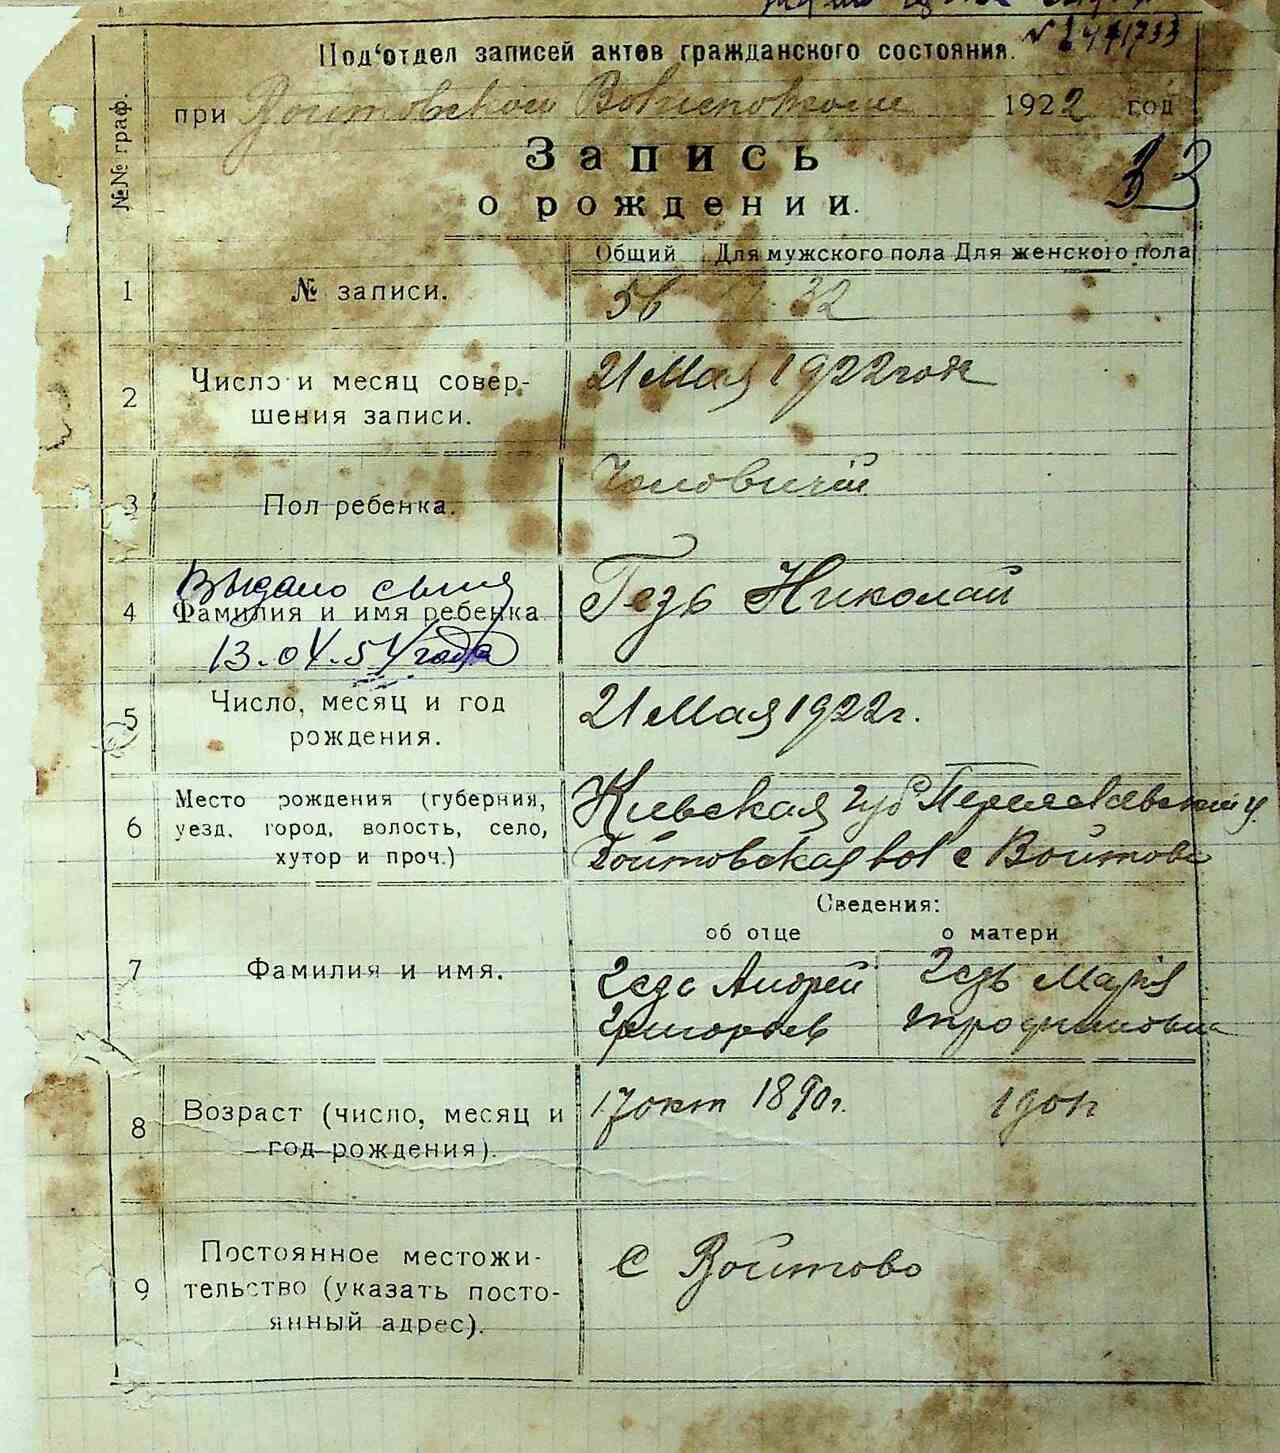 Под'отдел записей актов гражданского состояния.
при Войтовском Волисполкоме 1922 год
Запись
о рождении.
33
№№ граф.
Общий Для мужского пола Для женского пола
1 № записи. 56 32
2 Число и месяц совер-
шения записи.
21 Мая 1922 года
3 Пол ребенка. Чоловичий
Выдано
4 Фамилия и имя ребенка Гезь Николай
13.04.54 года
5 Число, месяц и год
рождения.
21 Мая 1922 г.
6 Место рождения (губерния,
уезд, город, волость, село,
хутор и проч.)
Киевская губ Переяславский у
Войтовская вол с Войтово
Сведения:
об отце о матери
7 Фамилия и имя.
Гезь Андрей Гезь Марія
Григорьев Трофимовна
8 Возраст (число, месяц и
год рождения).
17 окт 1890 г.
9 Постоянное местожи-
тельство (указать посто-
янный адрес).
С Войтово